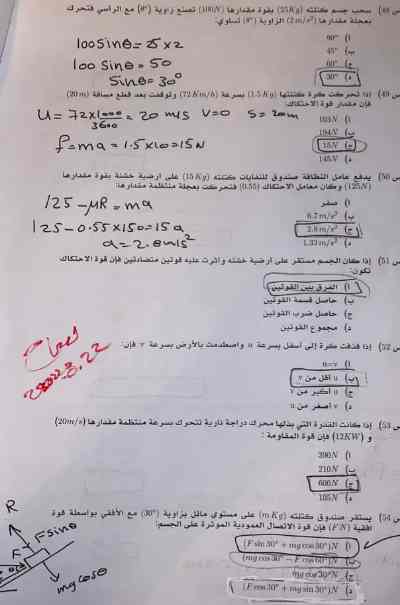 س 48) سحب جسم كتلته (25Kg) بقوة مقدارها (100N) تصنع زاوية (θ°) مع الرأسي فتحرك
بعجلة مقدارها (2 m/s²) الزاوية (θ°) تساوي:
أ) 90°
ب) 45°
ج) 60°
د) 30°
100 Sinθ = 25 x 2
100 Sinθ = 50
Sinθ = 30°
س 49) إذا تحركت كرة كتلتها (1.5 Kg) بسرعة (72 Km/h) وتوقفت بعد قطع مسافة (20 m)
فإن مقدار قوة الاحتكاك:
أ) 103N
ب) 194N
ج) 15N
د) 145N
U = 72 x 1000 / 3600 = 20 m/s V=0 S = 20m
f = ma = 1.5 x 10 = 15N
س 50) يدفع عامل النظافة صندوق للنفايات كتلته (15 Kg) على ارضية خشنة بقوة مقدارها
(125N) وكان معامل الاحتكاك (0.55) فتحركت بعجلة منتظمة مقدارها:
أ) صفر
ب) 6.7 m/s²
ج) 2.8 m/s²
د) 1.33 m/s²
125 - μR = ma
125 - 0.55 x 150 = 15a
a = 2.8 m/s²
س 51) إذا كان الجسم مستقر على ارضية خشنه واثرت عليه قوتين متضادتين فإن قوة الاحتكاك
تكون:
أ) الفرق بين القوتين
ب) حاصل قسمة القوتين
ج) حاصل ضرب القوتين
د) مجموع القوتين
س 52) إذا قذفت كرة إلى أسفل بسرعة u واصطدمت بالأرض بسرعة v فإن:
أ) u=v
ب) u أقل من v
ج) u أكبر من v
د) v اصغر من u
س 53) إذا كانت القدرة التي يبذلها محرك دراجة نارية تتحرك بسرعة منتظمة مقدارها (20m/s)
و (12KW) فإن قوة المقاومة :
أ) 390N
ب) 210N
ج) 600N
د) 105N
س 54) يستقر صندوق كتلته (m Kg) على مستوي مائل بزاوية (30°) مع الأفقي بواسطة قوة
افقية (F N) فإن قوة الاتصال العمودية المؤثرة على الجسم:
أ) (F sin 30° + mg cos 30°)N
ب) (mg cos 30° - F cos 60°)N
ج) mg cos 30°N
د) (F cos 30° + mg sin 30°)N
R
F sinθ
F
mg cosθ